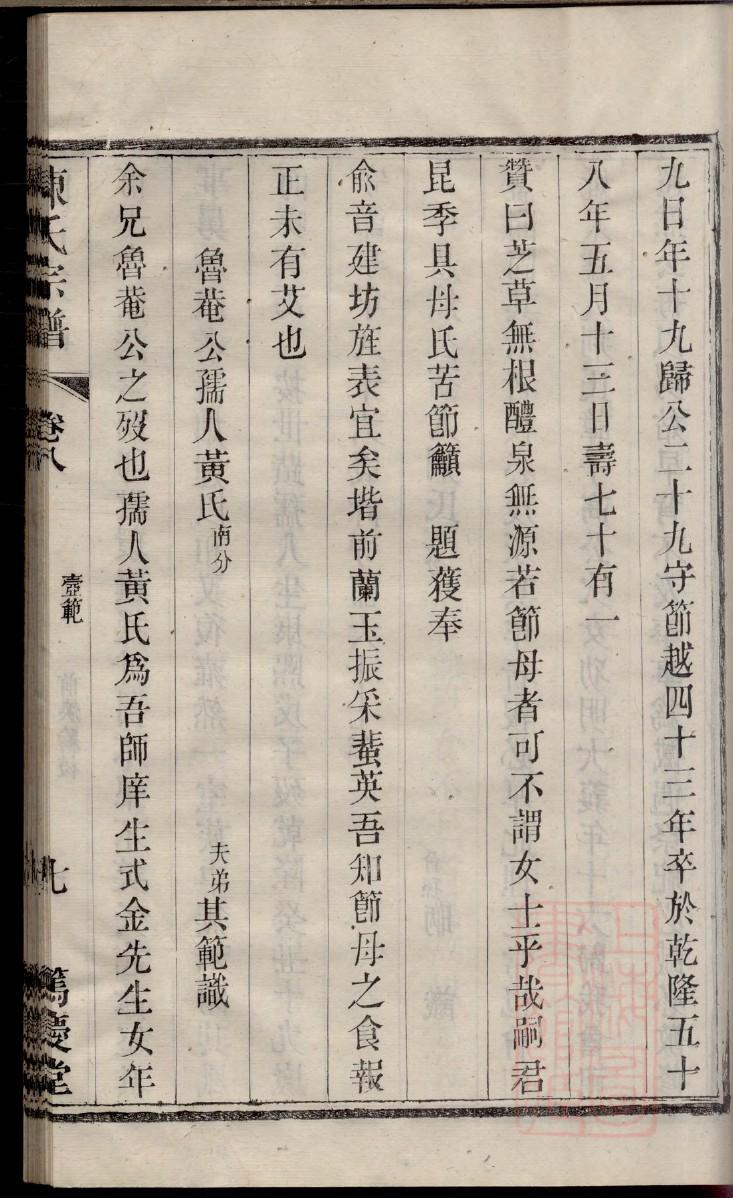 九日年十九歸公二十九守節越四十三年卒於乾隆五十
八年五月十三日壽七十有一
贊曰芝草無根醴泉無源若節母者可不謂女士乎哉嗣君
昆季具母氏苦節籲 題獲奉
俞音建坊旌表宜矣堦前蘭玉振采蜚英吾知節母之食報
正未有艾也
魯菴公孺人黃氏 南分 夫弟 其範識
余兄魯菴公之歿也孺人黃氏爲吾師庠生式金先生女年
陳氏宗譜 卷八 壼範 七 篤慶堂